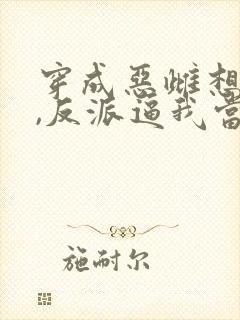 穿成惡雌想
,反派逼我當
施耐尔